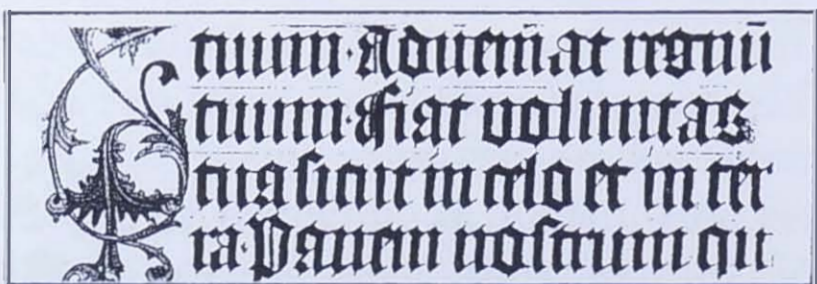 tuum·Adueniat regnū
tuum·Fiat voluntas
tua sicut in celo et in ter
ra·Panem nostrum qu